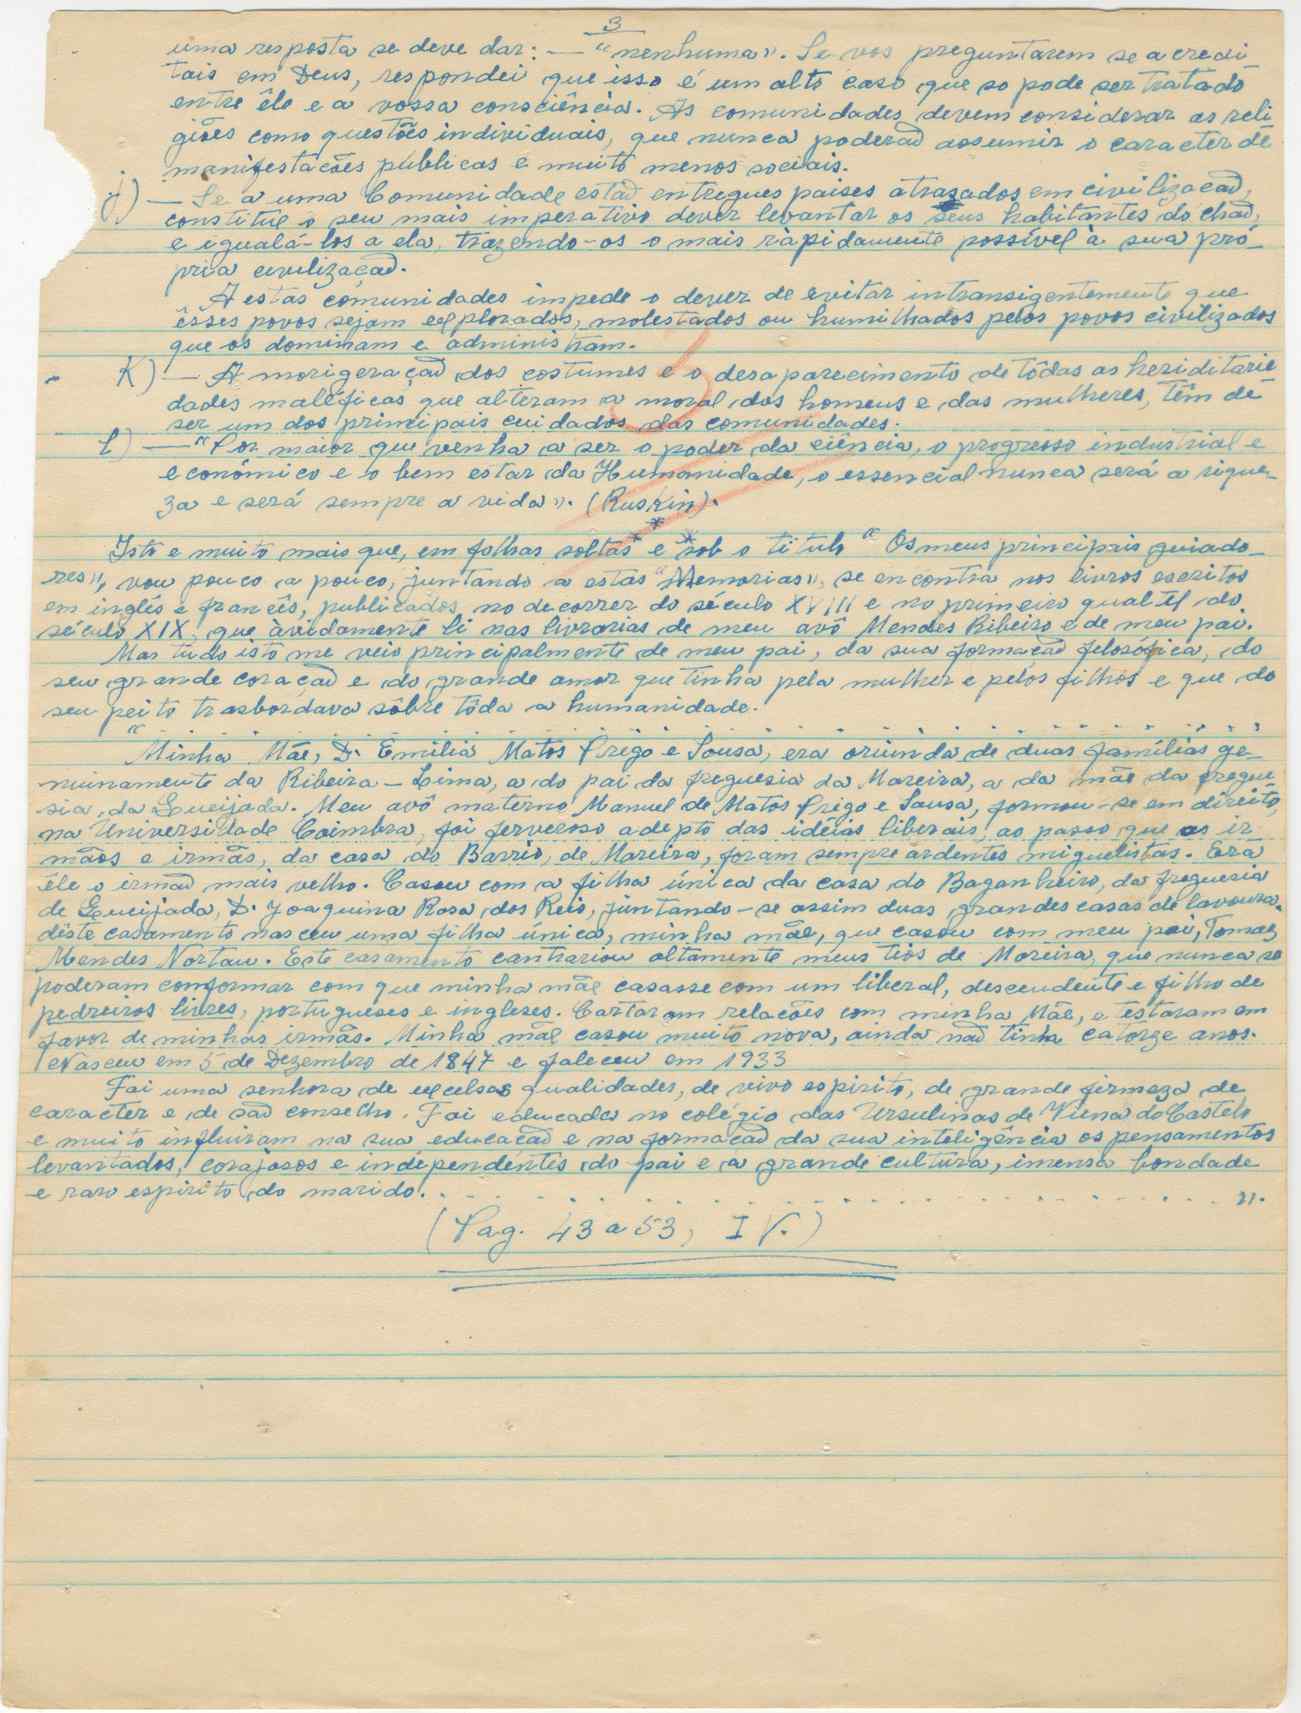 3
uma resposta se deve dar: — "nenhuma". Se vos preguntarem se acredi-
tais em Deus, respondei que isso é um alto caso que so pode ser tratado
entre êle e a vossa consciência. As comunidades devem considerar as reli
giões como questões individuais, que nunca poderaõ assumir o caracter de
manifestações públicas e muito menos sociais.
j) — Se a uma Comunidade estaõ entregues paises atrazados em civilizaçaõ,
constitue o seu mais imperativo dever levantar os seus habitantes do chaõ,
e igualá-los a ela, trazendo-os o mais ràpidamente possível à sua pró-
pria civilizaçaõ.
A estas comunidades impede o dever de evitar intransigentemente que
êsses povos sejam explorados, molestados ou humilhados pelos povos civilizados
que os dominam e administram.
K) — A morigeraçaõ dos costumes e o desaparecimento de tôdas as heriditarie
dades maléficas que alteram a moral dos homens e das mulheres, têm de
ser um dos principais cuidados das comunidades.
l) — "Por maior que venha a ser o poder da ciência, o progresso industrial e
económico e o bem estar da Humanidade, o essencial nunca será a rique-
za e será sempre a vida". (Ruskin).
* * *
Isto e muito mais que, em folhas soltas e sob o titulo "Os meus principais guiado-
res", vou pouco a pouco, juntando a estas "Memorias", se encontra nos livros escritos
em inglês e francês, publicados no decorrer do século XVIII e no primeiro quartel do
século XIX, que àvidamente li nas livrarias de meu avô Mendes Ribeiro e de meu pai.
Mas tudo isto me veio principalmente de meu pai, da sua formaçaõ filosófica, do
seu grande coraçaõ e do grande amor que tinha pela mulher e pelos filhos e que do
seu peito trasbordava sôbre tôda a humanidade.
"Minha Mãe, D. Emilia Matos Prego e Sousa, era oriunda de duas familias ge-
nuinamente da Ribeira-Lima, a do pai da freguesia da Moreira, a da mãe da fregue
sia da Queijada. Meu avô materno Manuel de Matos Prego e Sousa, formou-se em direito,
na Universidade Coimbra, foi fervoroso adepto das idéias liberais, ao passo que os ir
mãos e irmãs, da casa do Barrio, de Moreira, foram sempre ardentes miguelistas. Era
êle o irmaõ mais velho. Casou com a filha única da casa do Baganheiro, da freguesia
de Queijada, D. Joaquina Rosa dos Reis, juntando-se assim duas grandes casas de lavoura.
dêste casamento nasceu uma filha única, minha mãe, que casou com meu pai, Tomaz
Mendes Nortau. Este casamento contrariou altamente meus tios de Moreira, que nunca se
poderam conformar com que minha mãe casasse com um liberal, descendente e filho de
pedreiros livres, portugueses e ingleses. Cortaram relações com minha Mãe, e testaram em
favor de minhas irmãs. Minha mãe casou muito nova, ainda naõ tinha catorze anos.
Nasceu em 5 de Dezembro de 1847 e faleceu em 1933
Foi uma senhora de excelsas qualidades, de vivo espirito, de grande firmeza de
caracter e de saõ conselho. Foi educada no colégio das Ursulinas de Viena do Castelo
e muito influiram na sua educaçaõ e na formaçaõ da sua inteligência os pensamentos
levantados, corajosos e independentes do pai e a grande cultura, imensa bondade
e raro espirito do marido. . . . . . . . . . . . . . . . . . . . . . . . ".
(Pag. 43 a 53, IV.)